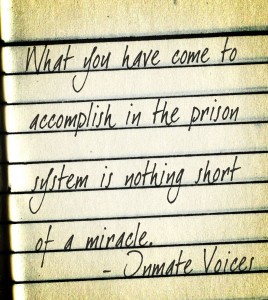 What you have come to
accomplish in the prison
system is nothing short
of a miracle.
- Inmate Voices